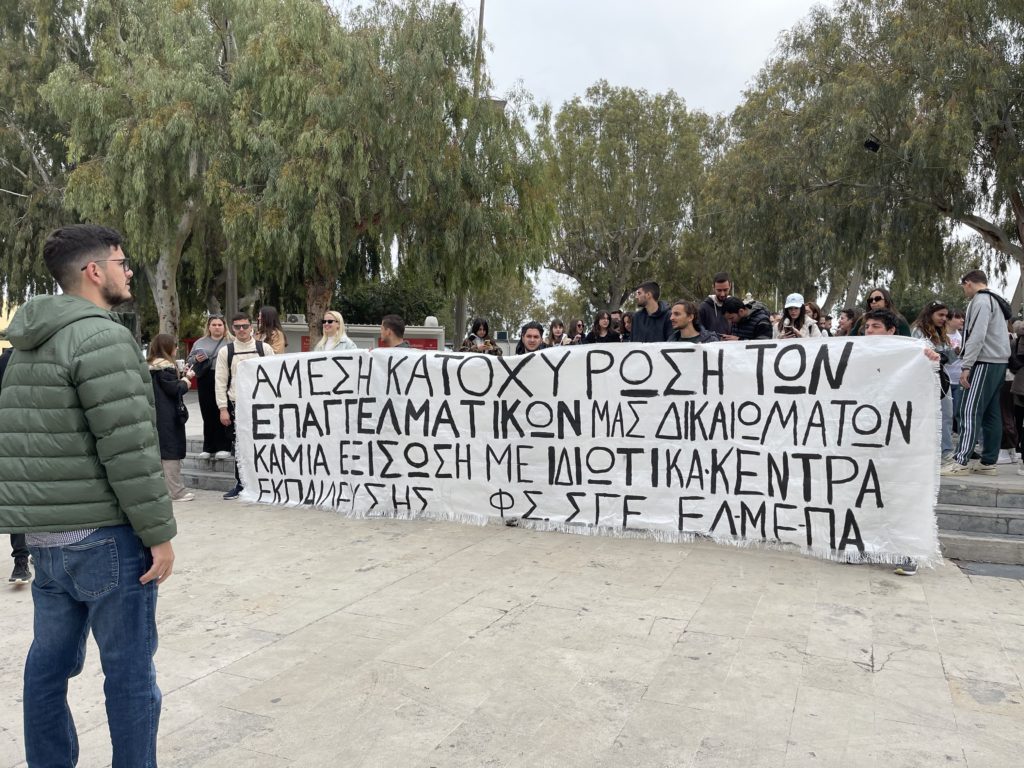 ΑΜΕΣΗ ΚΑΤΟΧΥΡΩΣΗ ΤΩΝ
ΕΠΑΓΓΕΛΜΑΤΙΚΩΝ ΜΑΣ ΔΙΚΑΙΩΜΑΤΩΝ
ΚΑΜΙΑ ΕΞΙΣΩΣΗ ΜΕ ΙΔΙΩΤΙΚΑ·ΚΕΝΤΡΑ
ΕΚΠΑΙΔΕΥΣΗΣ ΦΣ ΣΓΕ ΕΛ·ΜΕ·ΠΑ